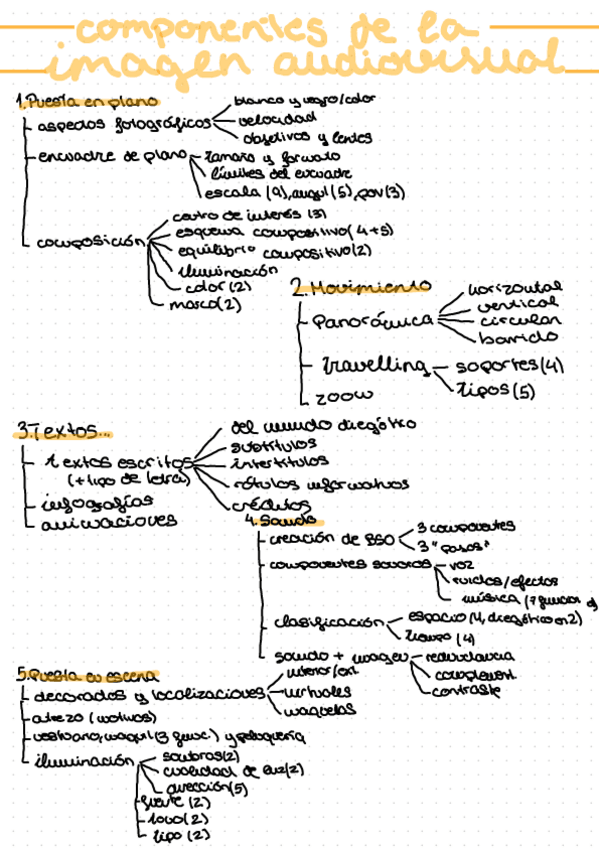 componentes de la
imagen audiovisual
1. Puesta en plano
aspectos fotográficos
blanco y negro/color
velocidad
objetivos y lentes
encuadre de plano
tamaño y formato
límites del encuadre
escala (9), angul (5), pov (3)
composición
centro de interés (3)
esquema compositivo (4+5)
equilibrio compositivo (2)
iluminación
color (2)
marco (2)
2. Movimiento
Panorámica
horizontal
vertical
circular
barrido
Travelling
soportes (4)
tipos (5)
zoom
3. Textos...
textos escritos
(+ tipo de letra)
del mundo diegético
subtítulos
intertítulos
rótulos informativos
créditos
infografías
animaciones
4. Sonido
creación de BSO
3 componentes
3 "pasos"
componentes sonoros
voz
ruidos/efectos
música (7 funcion
clasificación
espacio (4, diegético en 2)
tiempo (4)
sonido + imagen
redundancia
complement.
contraste
5. Puesta en escena
decorados y localizaciones
interior/ext.
virtuales
maquetas
atrezo (motivos)
vestuario, maquil (3 func.) y peluquería
iluminación
sombras (2)
cualidad de luz (2)
dirección (5)
fuente (2)
tono (2)
tipo (2)